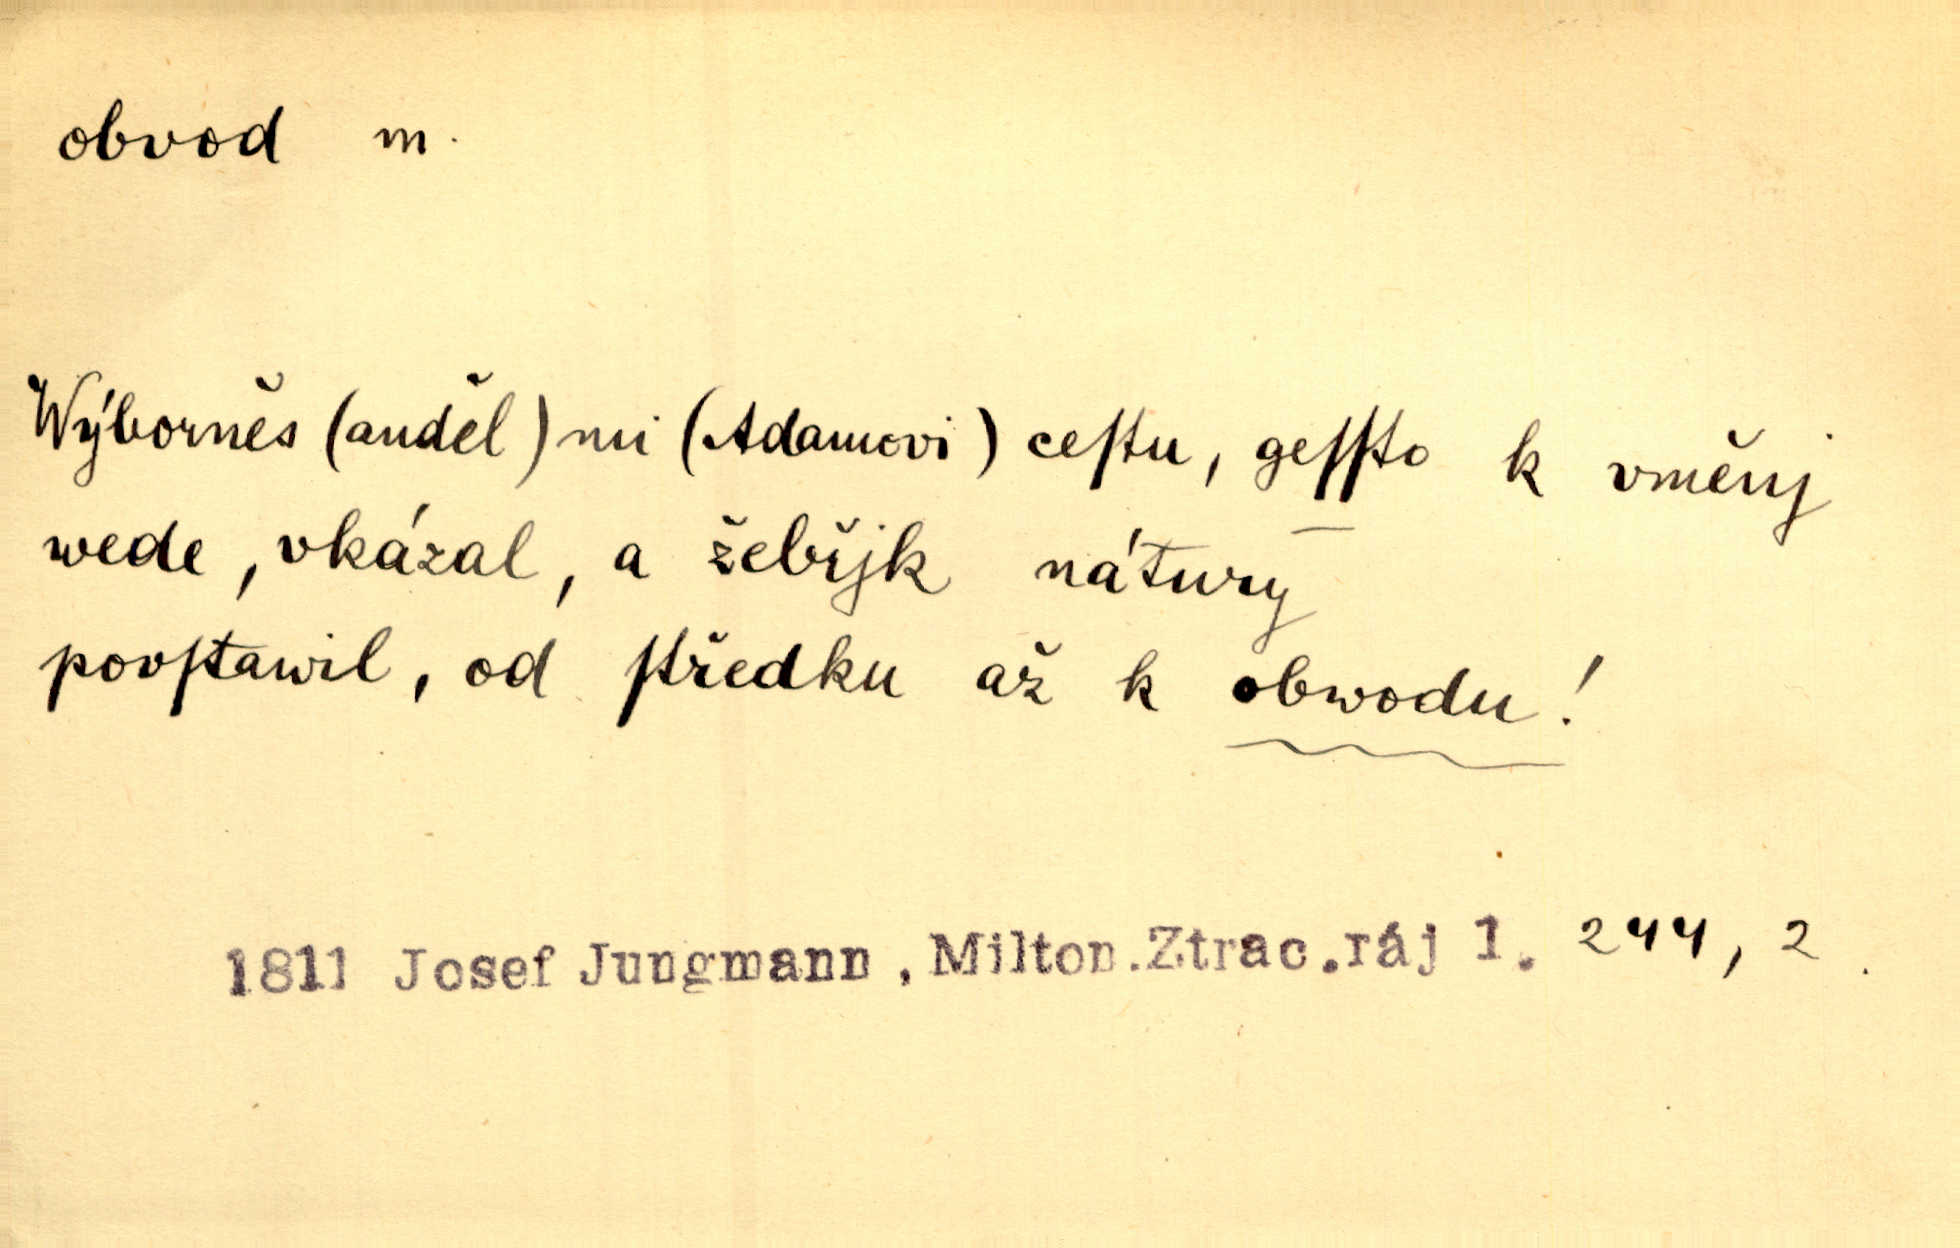 obvod m.
Wýborněs (anděl) mi (Adamovi) ceſtu, geſſto k vměnj
wede, vkázal, a žebřjk nátury
povſtawil, od ſtředku až k obwodu!
1811 Josef Jungmann, Milton.Ztrac.ráj 1. 244, 2.